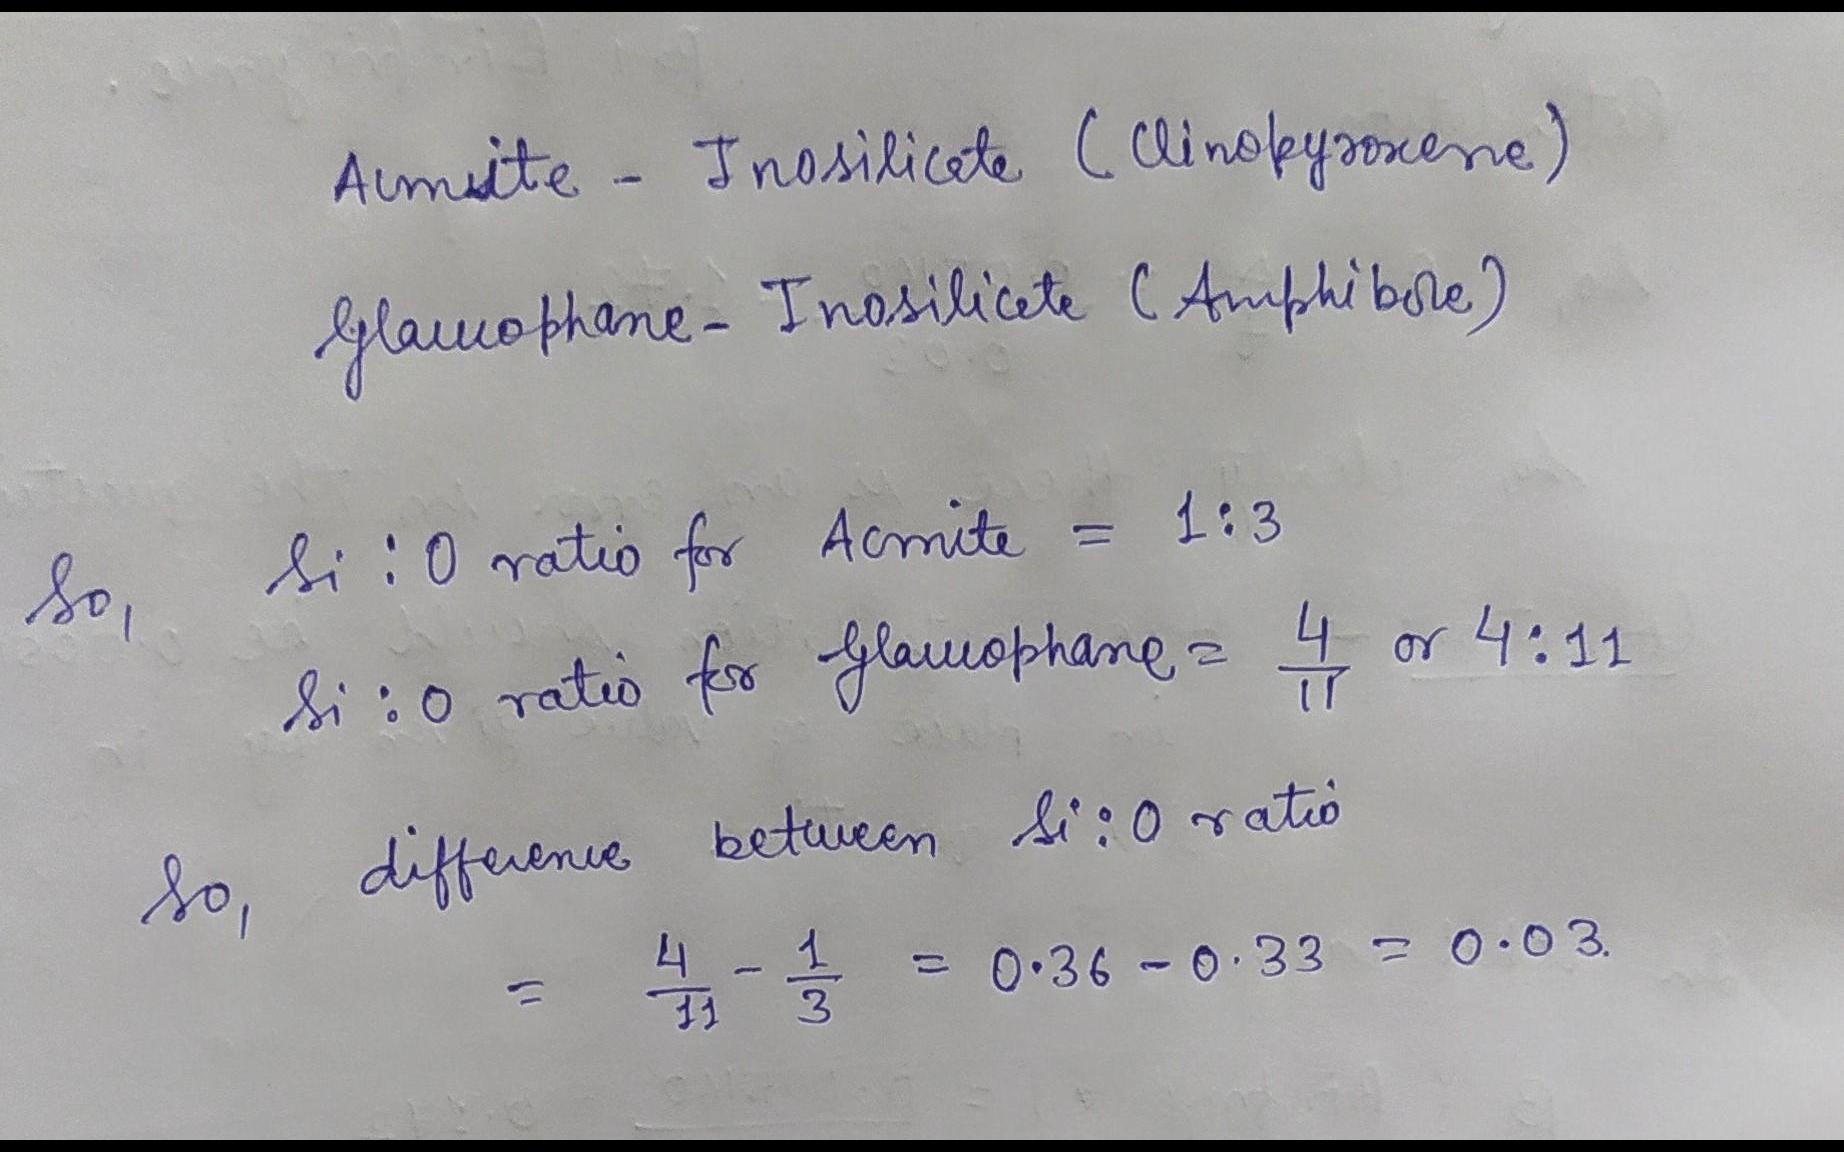 Acmite - Inosilicate (Clinopyroxene)
Glaucophane - Inosilicate (Amphibole)
So, Si : O ratio for Acmite = 1:3
Si : O ratio for Glaucophane = 4/11 or 4:11
So, difference between Si : O ratio
= 4/11 - 1/3 = 0.36 - 0.33 = 0.03.